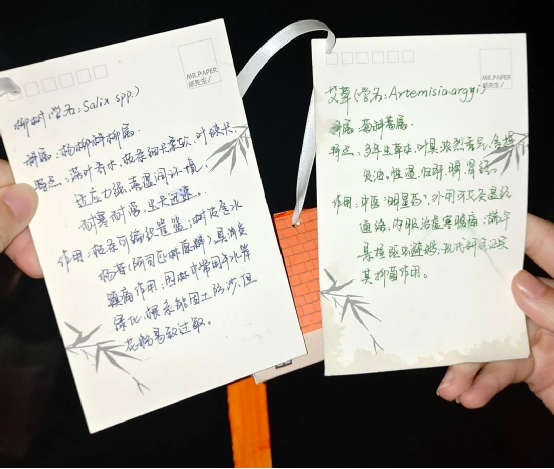 MR.PAPER
纸先生/
柳树(学名:Salix spp.)
科属:杨柳科柳属
特点:落叶乔木,枝条细长柔软,叶狭长,
适应力强,喜湿润环境,
耐寒耐涝,生长迅速。
作用:枝条可编织筐篮;树皮含水
杨苷(阿司匹林原料),具消炎
镇痛作用;园林中常用于水岸
绿化,根系能固土防沙,但
花粉易致过敏。
MR.PAPER
纸先生/
艾草(学名:Artemisia argyi)
科属:菊科蒿属
特点:多年生草本,叶具浓烈香气,含挥
发油。性温,归肝、脾、肾经。
作用:中医"明星药",外用可艾灸温经
通络,内服治虚寒腹痛;端午
悬挂驱虫避疫,现代研究证实
其抑菌作用。